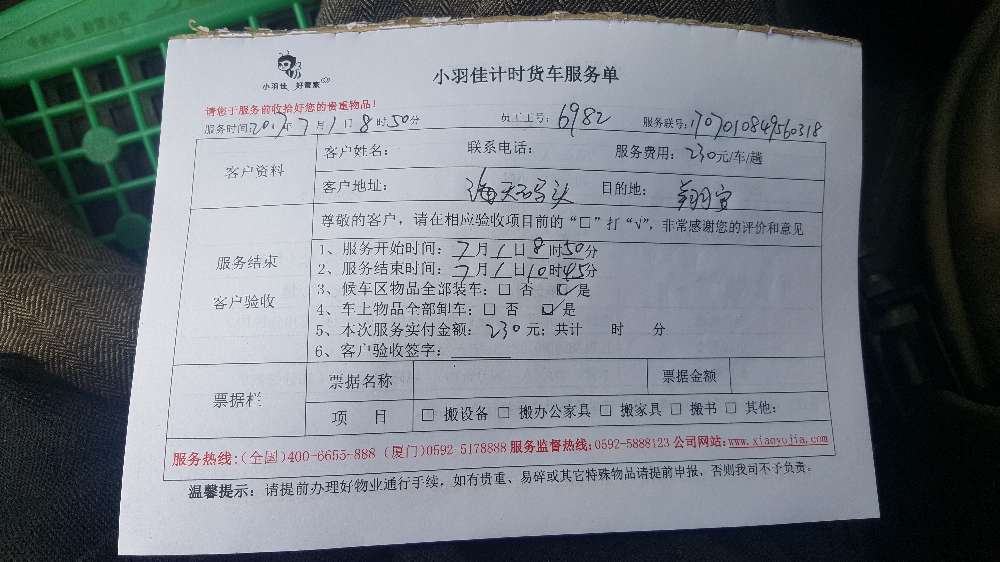 小羽佳 好管家
小羽佳计时货车服务单
请您于服务前收拾好您的贵重物品!
服务时间:2017年7月1日8时50分 员工工号:6982 服务联号:1707010849560318
客户资料
客户姓名: 联系电话: 服务费用:230元/车/趟
客户地址:海天码头 目的地:翔安
服务结束
客户验收
尊敬的客户,请在相应验收项目前的“□”打“√”,非常感谢您的评价和意见
1、服务开始时间:7月1日8时50分
2、服务结束时间:7月1日10时45分
3、候车区物品全部装车:□ 否 ☑是
4、车上物品全部卸车:□ 否 ☑是
5、本次服务实付金额:230元;共计 时 分
6、客户验收签字:
票据栏
票据名称 票据金额
项 目 □ 搬设备 □ 搬办公家具 □ 搬家具 □ 搬书 □ 其他:
服务热线:(全国)400-6655-888 (厦门)0592-5178888 服务监督热线:0592-5888123 公司网站:www.xiaoyujia.com
温馨提示:请提前办理好物业通行手续,如有贵重、易碎或其它特殊物品请提前申报,否则我司不予负责。